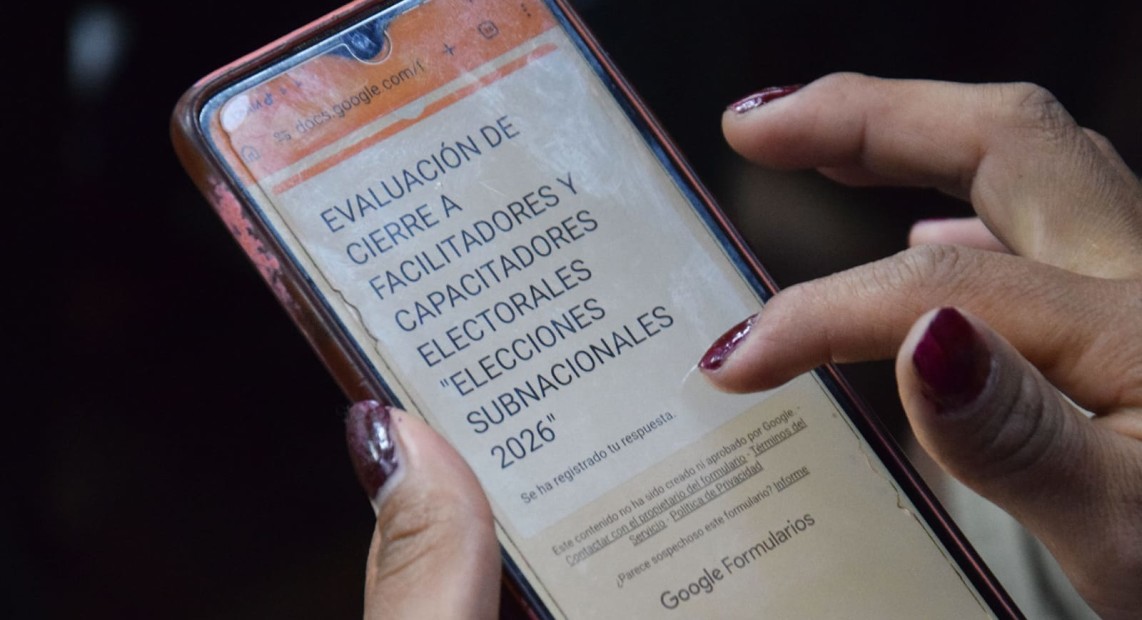 docs.google.com/f
EVALUACIÓN DE
CIERRE A
FACILITADORES Y
CAPACITADORES
ELECTORALES
"ELECCIONES
SUBNACIONALES
2026"
Se ha registrado tu respuesta.
Este contenido no ha sido creado ni aprobado por Google. -
Contactar con el propietario del formulario - Términos del
Servicio - Política de Privacidad
¿Parece sospechoso este formulario? Informe
Google Formularios